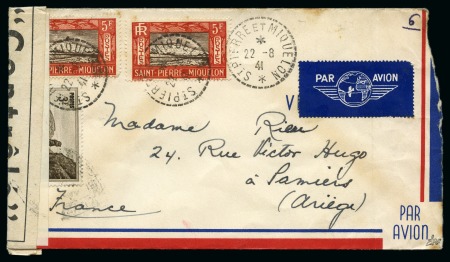 ST PIERRE ET MIQUELON
22-8
41
6
5F
RF
5F
POSTES
SAINT-PIERRE-MIQUELON
PAR AVION
V
Madame Rieu
24, Rue Victor Hugo
à Pamiers
(Ariège)
France
PAR
AVION
"Contrôlé"